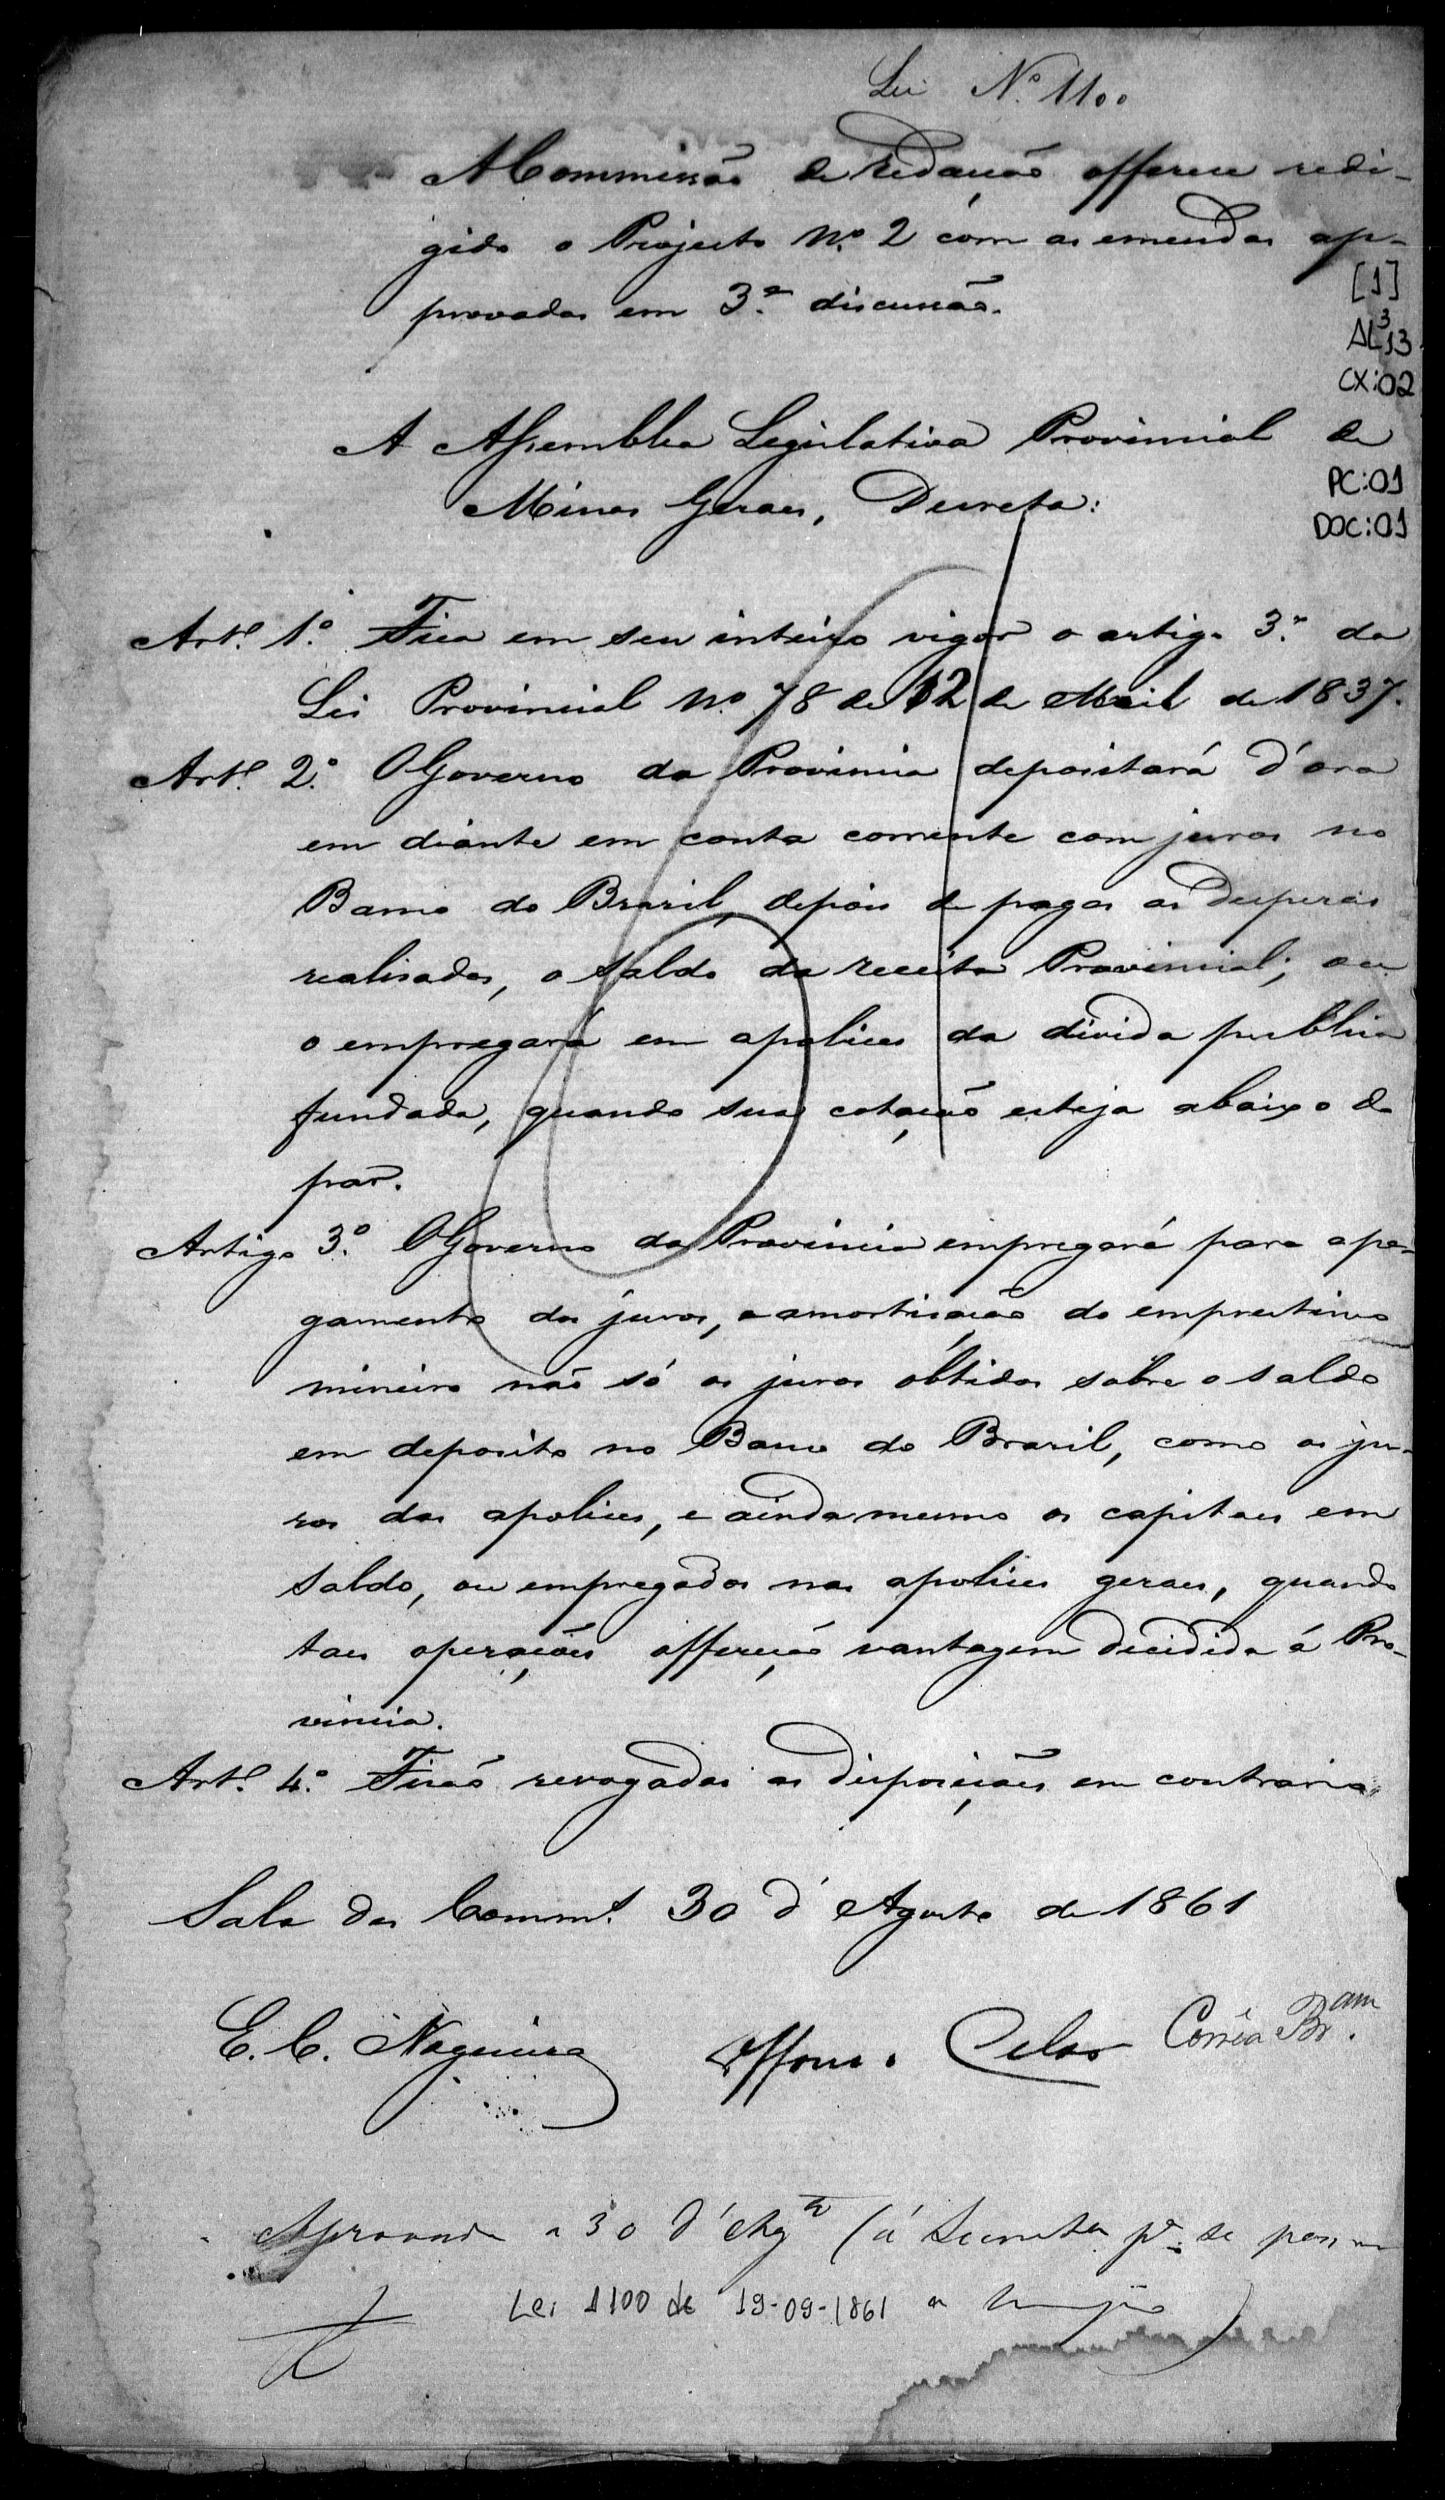 Lei N.º 1100
A Commissão de redacção offerece redi-
gido o Projecto N.º 2 com as emendas ap-
provadas em 3.ª discussão.
[1]
AL³13
CX:02
A Assemblea Legislativa Provincial de
Minas Geraes, Decreta:
PC:01
DOC:01
Art.º 1.º Fica em seu inteiro vigor o artigo 3.º da
Lei Provincial N.º 78 de 12 de Abril de 1837.
Art.º 2.º O Governo da Provincia depositará d'ora
em diante em conta corrente com juros no
Banco do Brasil, depois de pagas as despesas
realisadas, o saldo da receita Provincial; ou
o empregará em apolices da divida publica
fundada, quando sua cotação esteja abaixo do
par.
Artigo 3.º O Governo da Provincia empregará para o pa-
gamento dos juros, e amortisação do emprestimo
mineiro não só os juros obtidos sobre o saldo
em deposito no Banco do Brasil, como os ju-
ros das apolices, e ainda mesmo os capitaes em
saldo, ou empregados nas apolices geraes, quando
taes operações offereção vantagem decidida á Pro-
vincia.
Art.º 4.º Ficão revogadas as disposições em contrario.
Sala das Comm.s 30 d'Agosto de 1861
E. C. Nogueira Affonso Celso Corrêa Br.am
Aprovada a 30 d'Ag.to (á Secreta p.a se
Lei 1100 de 19-09-1861